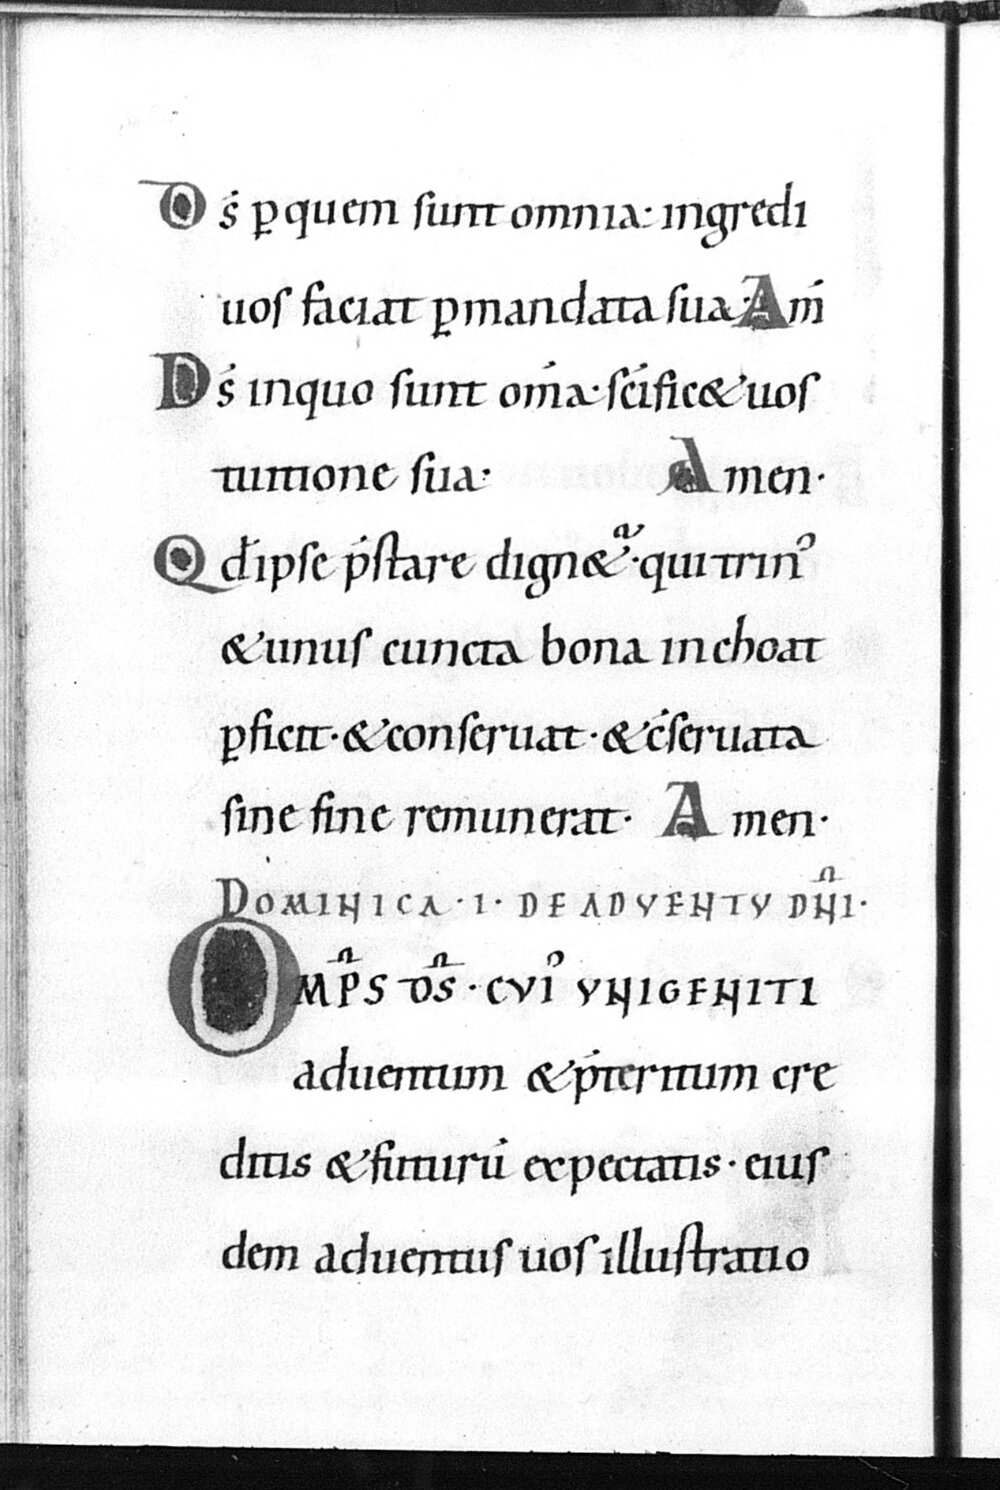 Ds̄ ꝑ quem sunt omnia· ingredi
uos faciat ꝑ mandata sua· Am̄
Ds̄ in quo sunt om̄a· sc̄ificet uos
tuitione sua· Amen·
Qd̄ ipse p̄stare dignetᷓ· qui trinꝰ
& unus cuncta bona inchoat
ꝑficit· & conseruat· & c̄seruata
sine fine remunerat· Amen·
DOMINICA · I · DE ADVENTV DN̄I·
OMP̄S DS̄ · CVIꝰ VNIGENITI
aduentum & p̄teritum cre
ditis & futurū expectatis· eius
dem aduentus uos illustratio